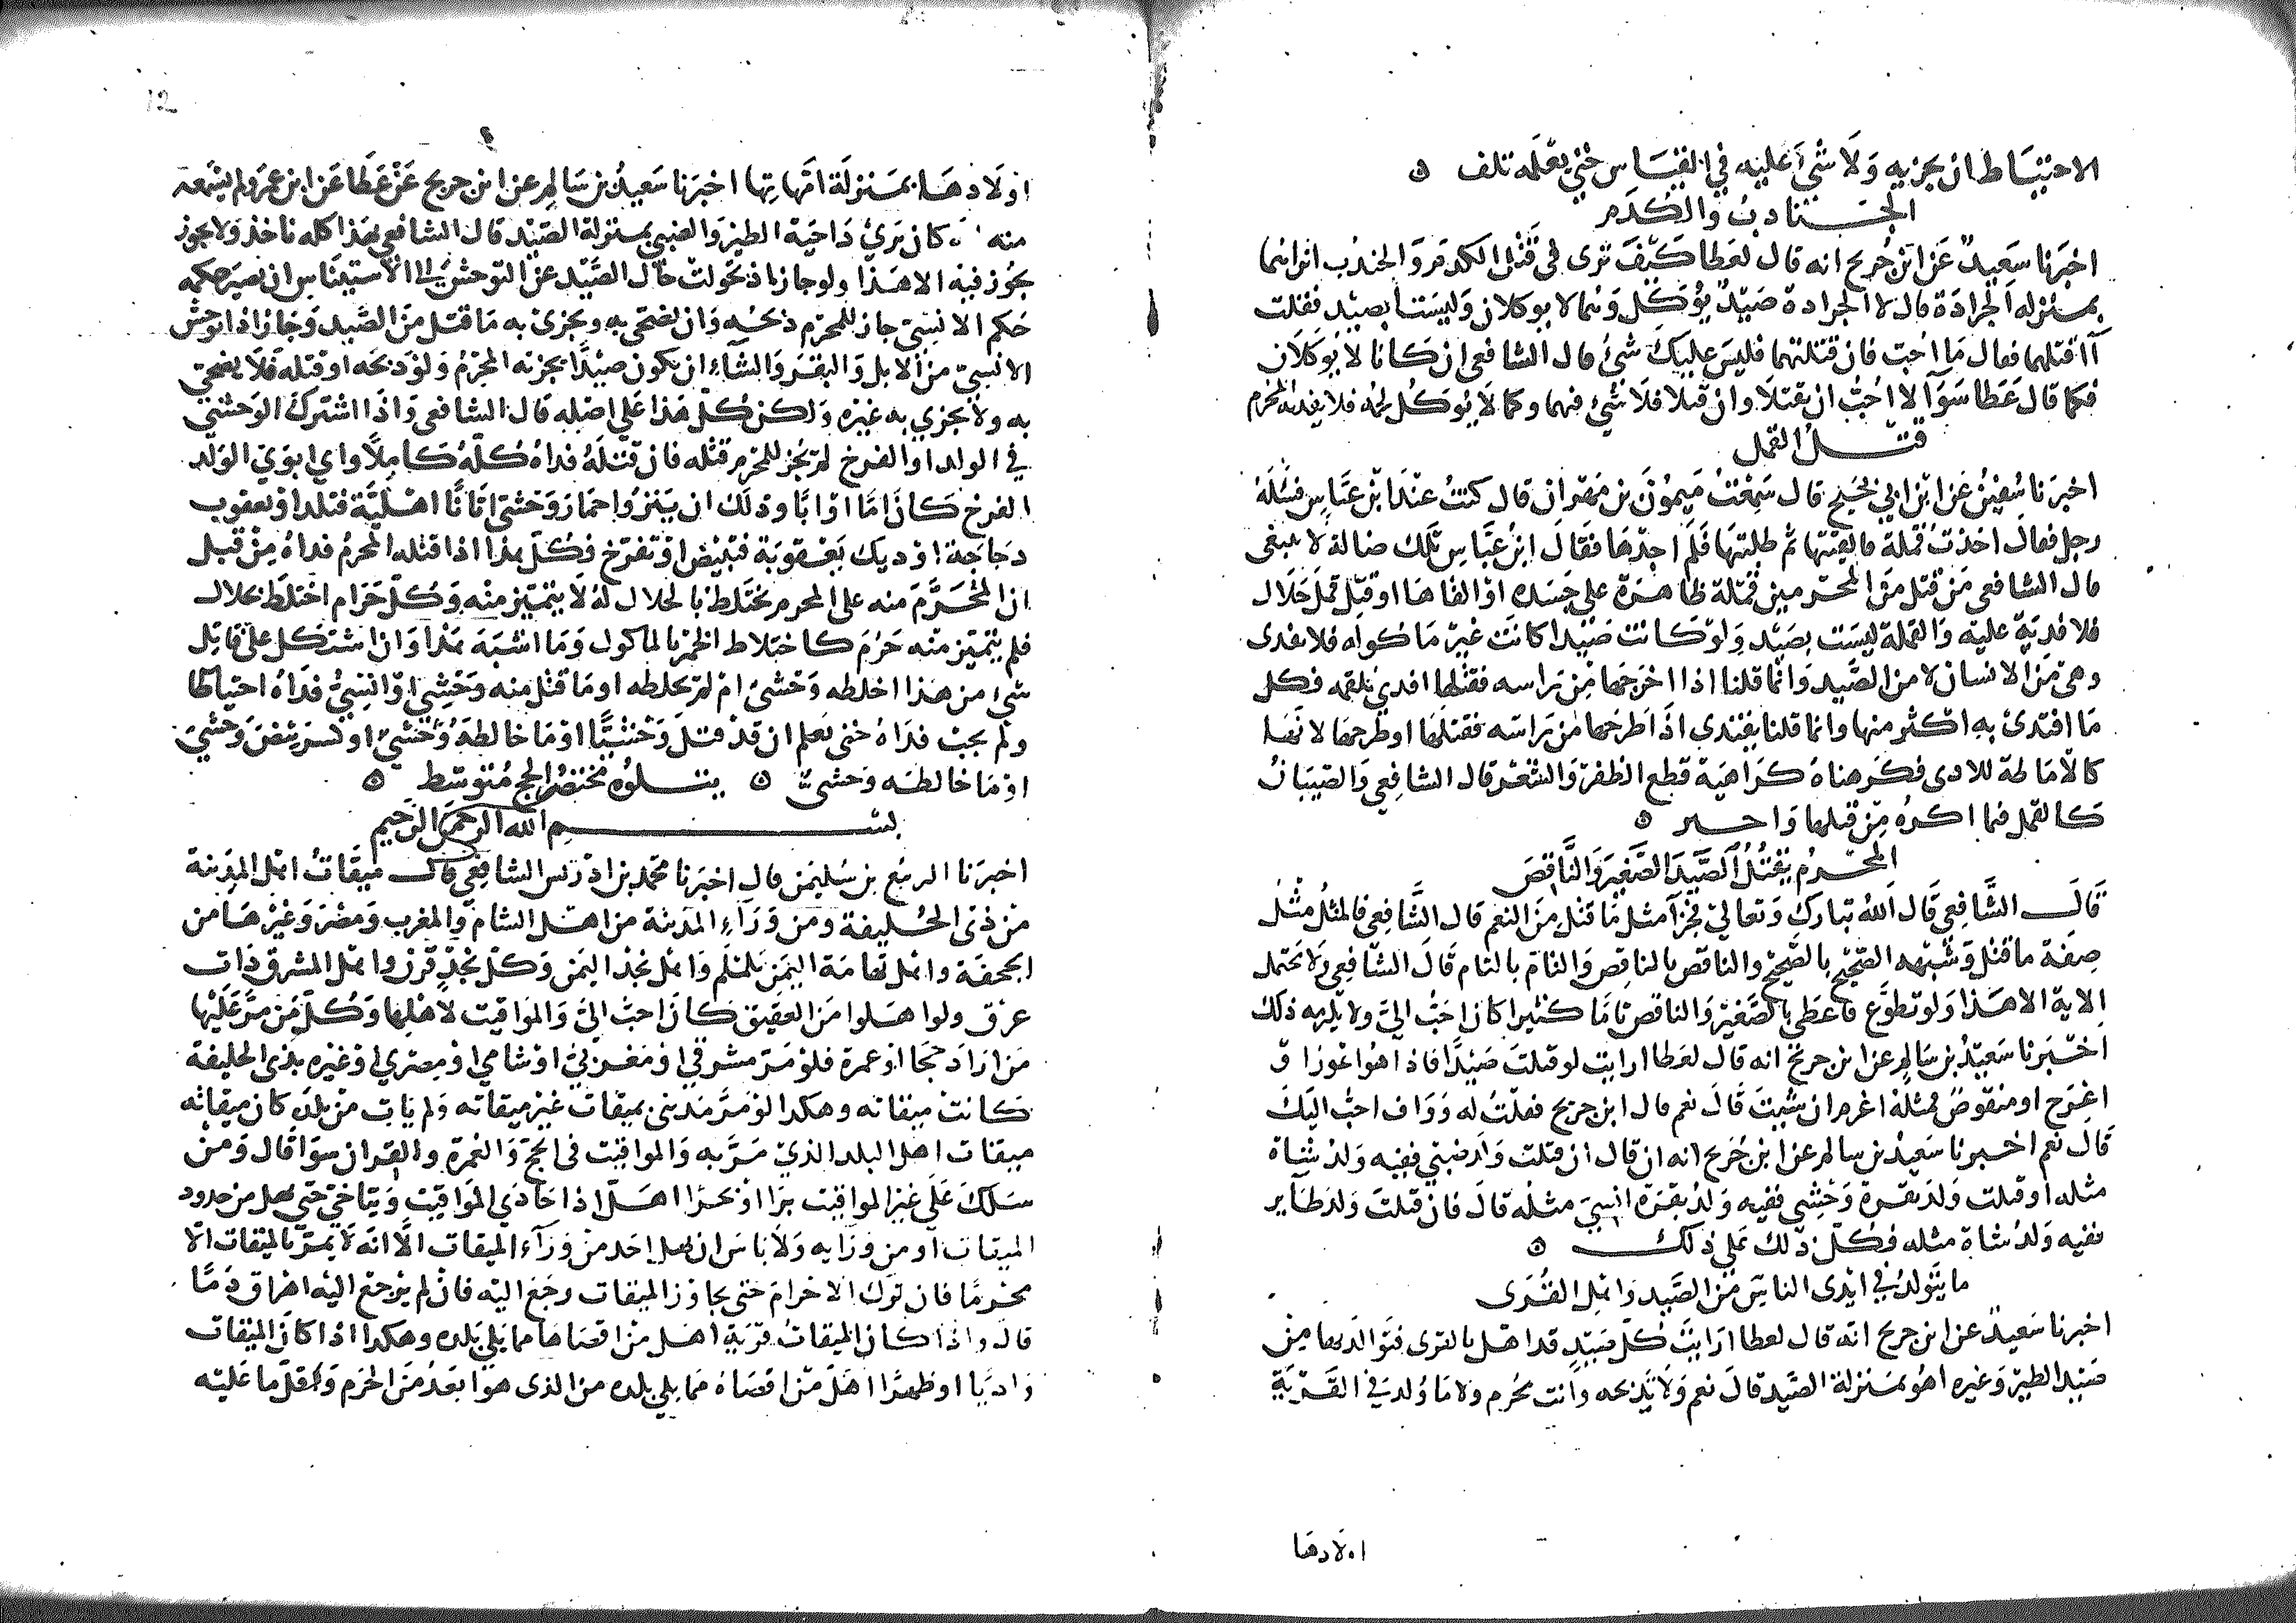 الاحتياط ان يجزيه ولا شئ عليه في القياس حتى يعلمه تلف
الجنادب والكدم
اخبرنا سعيد عن ابن جريج انه قال لعطا كيف ترى في قتل الكدم والجندب اتراهما
بمنزله الجرادة قال لا الجرادة صيد يؤكل وهما لا يوكلان وليستا بصيد فقلت
آاقتلهما فقال ما احب فان قتلتهما فليس عليك شئ قال الشافعي ان كانا لا يوكلان
فكما قال عطا سوآ لا احب ان يقتلا وان قتلا فلا شئ فيهما وكلما لا يوكل لحمه فلا يفديه المحرم
قتل القمل
اخبرنا سفين عن ابن ابي نجيح قال سمعت ميمون بن مهران قال كنت عند ابن عباس فسئله
رجل فقال اخذت قملة فالقيتها ثم طلبتها فلم اجدها فقال ابن عباس تلك ضالة لا تبتغى
قال الشافعي من قتل من المحرمين قملة ظاهرة على جسده او القاها او قتل قمل حلال
فلا فدية عليه والقملة ليست بصيد ولو كانت صيدا كانت غير ماكوله فلا تفدى
وهي من الانسان لا من الصيد وانما قلنا اذا اخرجها من راسه فقتلها افدى بلقمه فكل
ما افتدى به اكثر منها وانما قلنا يفتدي اذا طرحها من راسه فقتلها او طرحها لانها
كالاماطة للاذى فكرهناه كراهية قطع الظفر والشعر قال الشافعي والصيبان
كالقمل فيما اكره من قتلها واجيز
المحرم يقتل الصيد الصغير والناقص
قال الشافعي قال الله تبارك وتعالى فجزآ مثل ما قتل من النعم قال الشافعي فالمثل مثل
صفة ما قتل وشبهه الصحيح بالصحيح والناقص بالناقص والتام بالتام قال الشافعي ولا تحتمل
الاية الا هذا ولو تطوع فاعطى بالصغير والناقص تاما كبيرا كان احب الي ولا يلزمه ذلك
اخبرنا سعيد بن سالم عن ابن جريج انه قال لعطا ارايت لو قتلت صيدا فاذا هو اعور او
اعرج او منقوص فمثله اغرم ان شيت قال نعم قال ابن جريج فقلت له وواف احب اليك
قال نعم اخبرنا سعيد بن سالم عن ابن جريج انه ان قال ان قتلت ولد ظبي ففيه ولد شاة
مثله او قتلت ولد بقرة وحشي ففيه ولد بقرة انسي مثله قال فان قتلت ولد طآير
ففيه ولد شاة مثله فكل ذلك على ذلك
ما يتولد في ايدي الناس من الصيد واهل القرى
اخبرنا سعيد عن ابن جريج انه قال لعطا ارايت كل صيد قد اهل بالقرى فتوالد بها من
صيد الطير وغيره اهو بمنزلة الصيد قال نعم ولا تذبحه وانت محرم ولا ما ولد في القرية
اولادها
12
اولادها بمنزلة امهاتها اخبرنا سعيد بن سالم عن ابن جريج عن عطا عن ابن عمر ولم يسمعه
منه كان يرى داجية الطير والضبي بمنزلة الصيد قال الشافعي بهذا كله ناخذ ولا يجوز
يجوز فيه الا هذا ولو جاز اذ تحولت حال الصيد عن التوحش الى الاستيناس ان يصير حكمه
حكم الانسي جاز للمحرم ذبحه وان يضحى به ويجزى به ما قتل من الصيد وجاز اذا توحش
الانسي من الابل والبقر والشاء ان يكون صيدا يجزئه المحرم ولو ذبحه او قتله فلا يضحي
به ولا يجزي به غيره ولكن كل هذا على اصله قال الشافعي واذا اشترك الوحشي
في الولد او الفرخ لم يجز للمحرم قتله فان قتله فداه كله كاملا واي ابوي الولد
الفرخ كان اما او ابا وذلك ان ينزوا حمار وحشي اتانا اهلية فتلد او يعقوب
دجاجة او ديك يعقوبة فتبيض او تفرخ فكل هذا اذا قتله المحرم فداه من قبل
ان المحرم منه على المحرم يختلط بالحلال له لا يتميز منه وكل حرام اختلط بحلال
فلم يتميز منه حرم كاختلاط الخمر بالماكول وما اشبه هذا وان اشتكل على قاتل
شي من هذا اخلطه وحشي ام لم يخلطه او ما قتل منه وحشي او انسي فداه احتياطا
ولم يجب فداه حتى يعلم ان قد قتل وحشيا او ما خالطه وحشي او كسر بيض وحشي
او ما خالطه وحشي يتلوه مختصر الحج متوسط
بسم الله الرحمن الرحيم
اخبرنا الربيع بن سليمن قال اخبرنا محمد بن ادريس الشافعي قال ميقات اهل المدينة
من ذي الحليفة ومن ورآء المدينة من اهل الشام والمغرب ومصر وغيرها من
الجحفة واهل تهامة اليمن يلملم واهل نجد اليمن وكل نجد قرن واهل المشرق ذات
عرق ولو اهلوا من العقيق كان احب الي والمواقيت لاهلها وكل من مر عليها
من اراد حجا او عمرة فلو مر مشرقي او مغربي او شامي او مصري او غيره بذي الحليفة
كانت ميقاته وهكذا لو مر مدني بميقات غير ميقاته ولم يات من بلده كان ميقاته
ميقات اهل البلد الذي مر به والمواقيت في الحج والعمرة والقران سوا قال ومن
سلك على غير المواقيت برا او بحرا اهل اذا حاذى المواقيت ويتاخى حتى يهل من حدود
الميقات او من ورايه ولا باس ان يهل احد من ورآء الميقات الا انه لا يمر بالميقات الا
محرما فان ترك الاحرام حتى يجاوز الميقات رجع اليه فان لم يرجع اليه اهراق دما
قال واذا كان الميقات قرية اهل من اقصاها مما يلي بلده وهكذا اذا كان الميقات
واديا او ظهرا اهل من اقصاه مما يلي بلده من الذي هو ابعد من الحرم واقل ما عليه